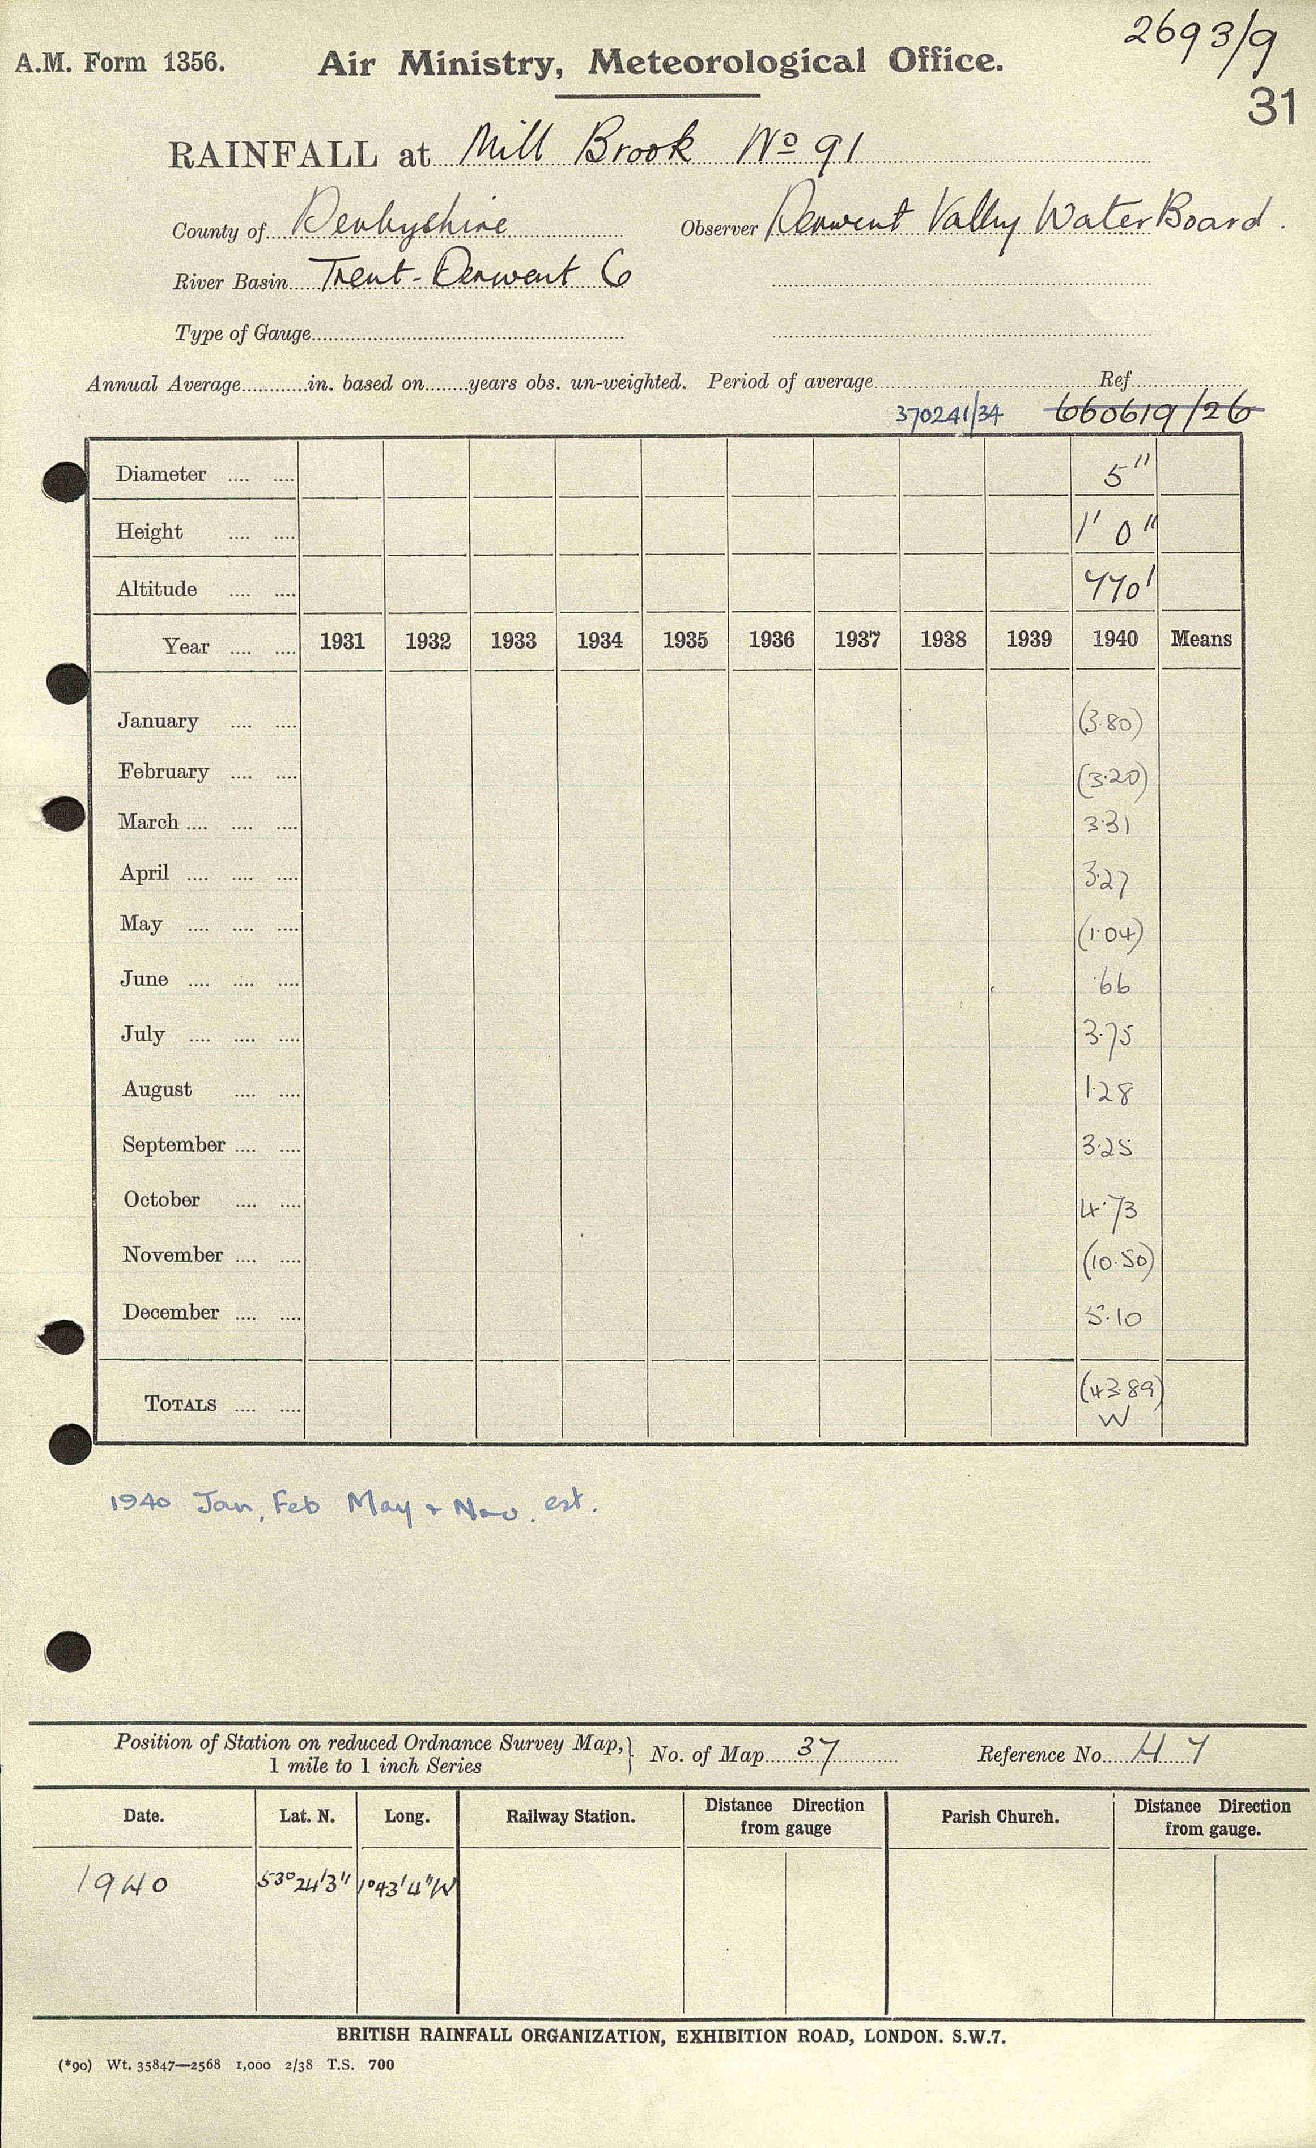 2693/9
A.M. Form 1356. Air Ministry, Meteorological Office.
31
RAINFALL at Mill Brook No 91
County of Derbyshire Observer Derwent Valley Water Board.
River Basin Trent-Derwent 6
Type of Gauge
Annual Average in. based on years obs. un-weighted. Period of average Ref
370241/34 660619/26
Diameter 5"
Height 1' 0"
Altitude 770'
Year 1931 1932 1933 1934 1935 1936 1937 1938 1939 1940 Means
January (3.80)
February (3.20)
March 3.31
April 3.27
May (1.04)
June .66
July 3.75
August 1.28
September 3.25
October 4.73
November (10.50)
December 5.10
TOTALS (43.89)
W
1940 Jan, Feb May + Nov. est.
Position of Station on reduced Ordnance Survey Map, 1 mile to 1 inch Series } No. of Map 37 Reference No. H 7
Date. Lat. N. Long. Railway Station. Distance Direction from gauge Parish Church. Distance Direction from gauge.
1940 53° 24' 3" 1° 43' 4" W
BRITISH RAINFALL ORGANIZATION, EXHIBITION ROAD, LONDON. S.W.7.
(*90) Wt. 35847—2568 1,000 2/38 T.S. 700